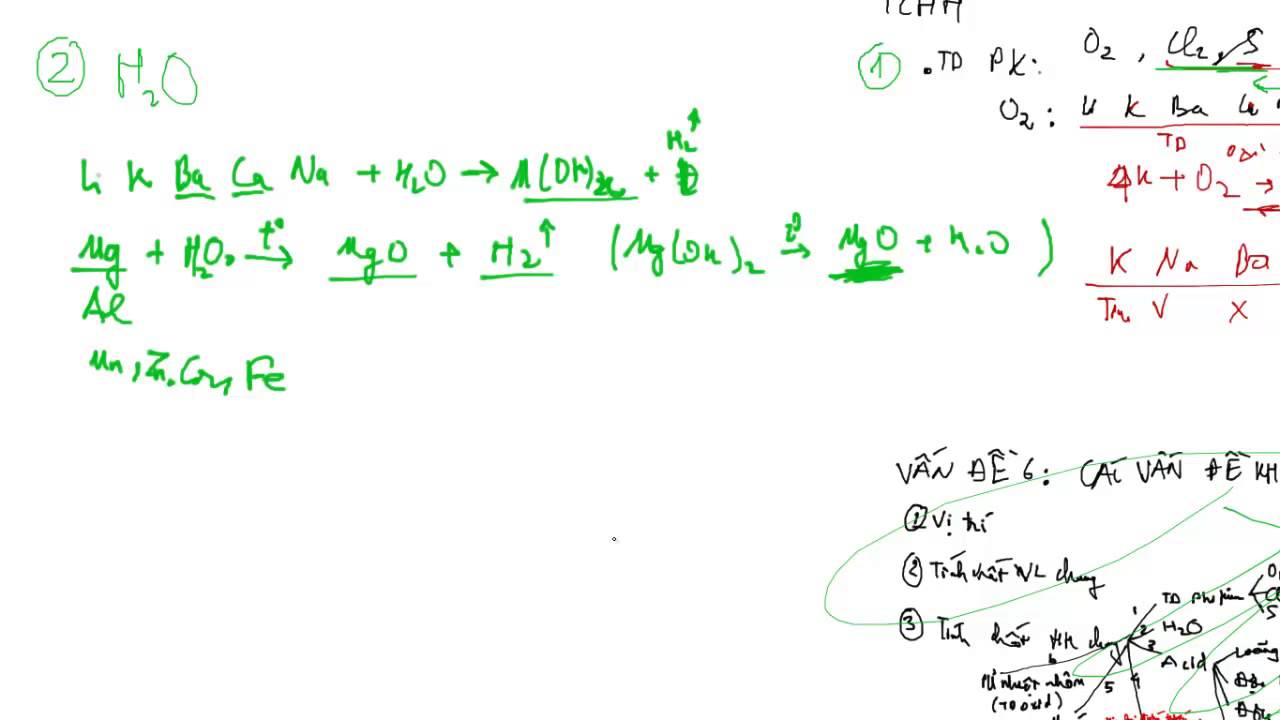 ② H₂O
Li K Ba Ca Na + H₂O → M(OH) + H₂↑
Mg + H₂O → t° MgO + H₂↑ (Mg(OH)₂ t° → MgO + H₂O)
Al
Mn, Zn, Cr, Fe
TCHH
① .TD PK: O₂, Cl₂, S
O₂: Li K Ba Ca
TD
4K + O₂ →
K Na Ba
V X
VẤN ĐỀ 6: CÁC VẤN ĐỀ KH
① Vị trí
② Tính chất VL chung
③ Tính chất HH chung
1 TD Phi kim
2 H₂O
3 Acid
4
5
6
Loãng
Đặc
Pứ nhiệt nhôm
(TD oxid)